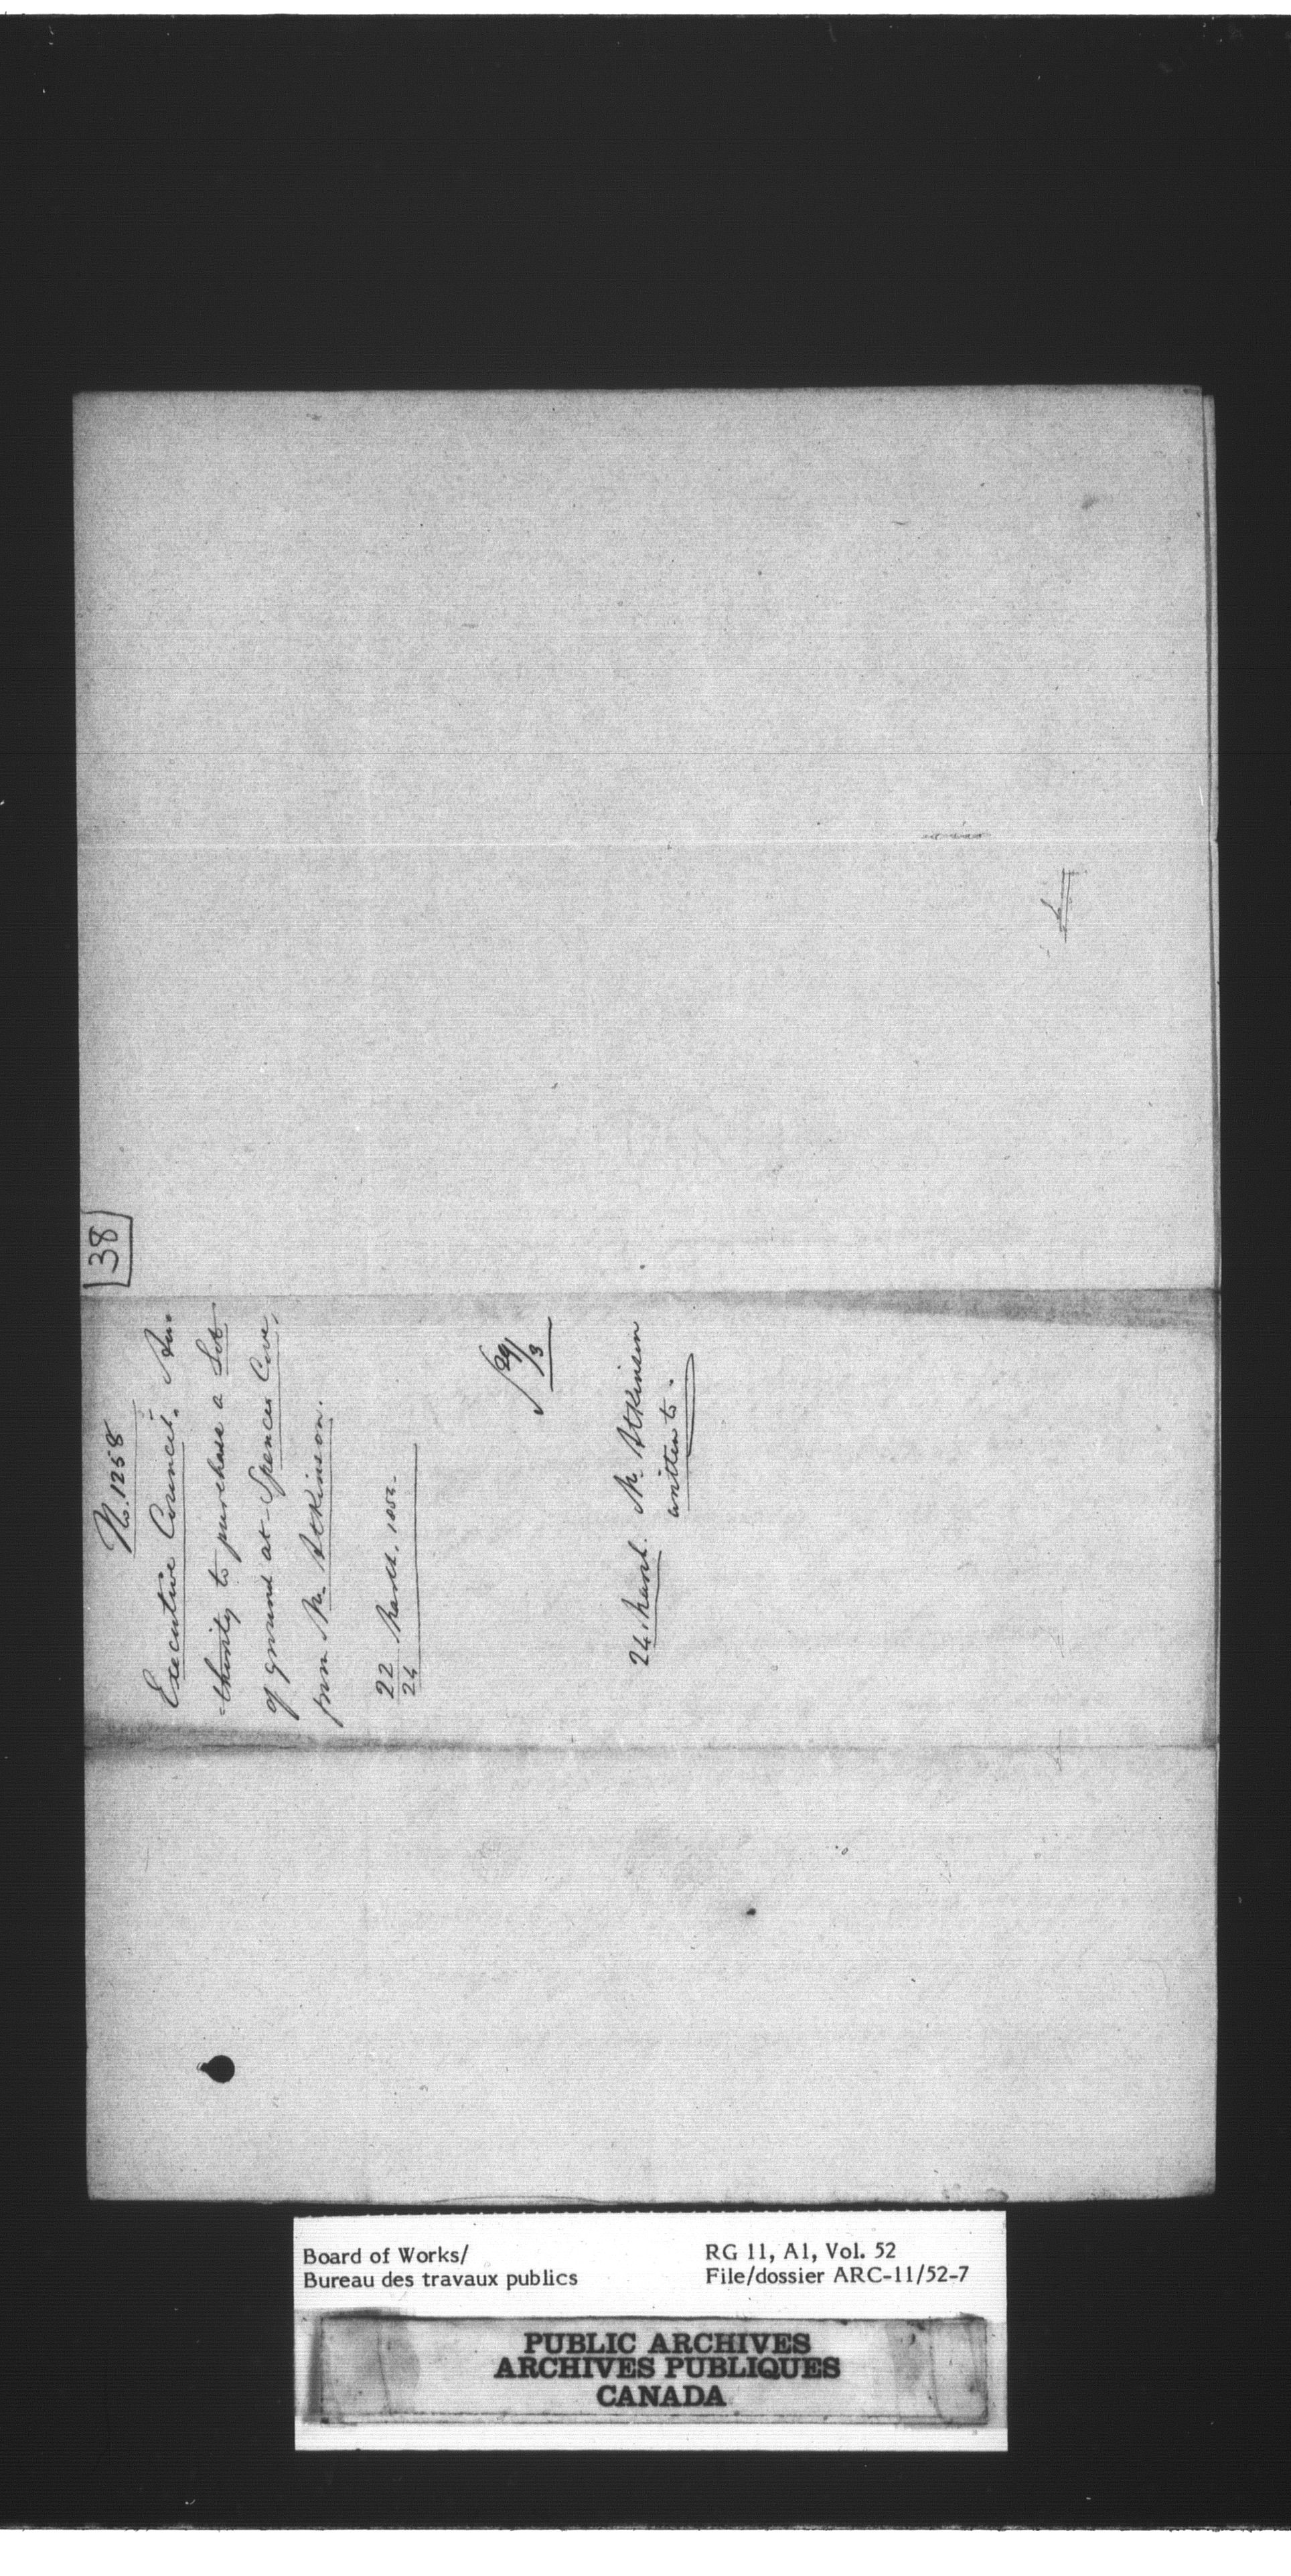 38
No. 1258
Executive Council. Au=
=thority to purchase a Lot
of ground at Spencer Cove,
from Mr. Atkinson.
22 March. 1852.
24
29/3
24 March. Mr. Atkinson
written to.
Board of Works/
Bureau des travaux publics
RG 11, A1, Vol. 52
File/dossier ARC-11/52-7
PUBLIC ARCHIVES
ARCHIVES PUBLIQUES
CANADA